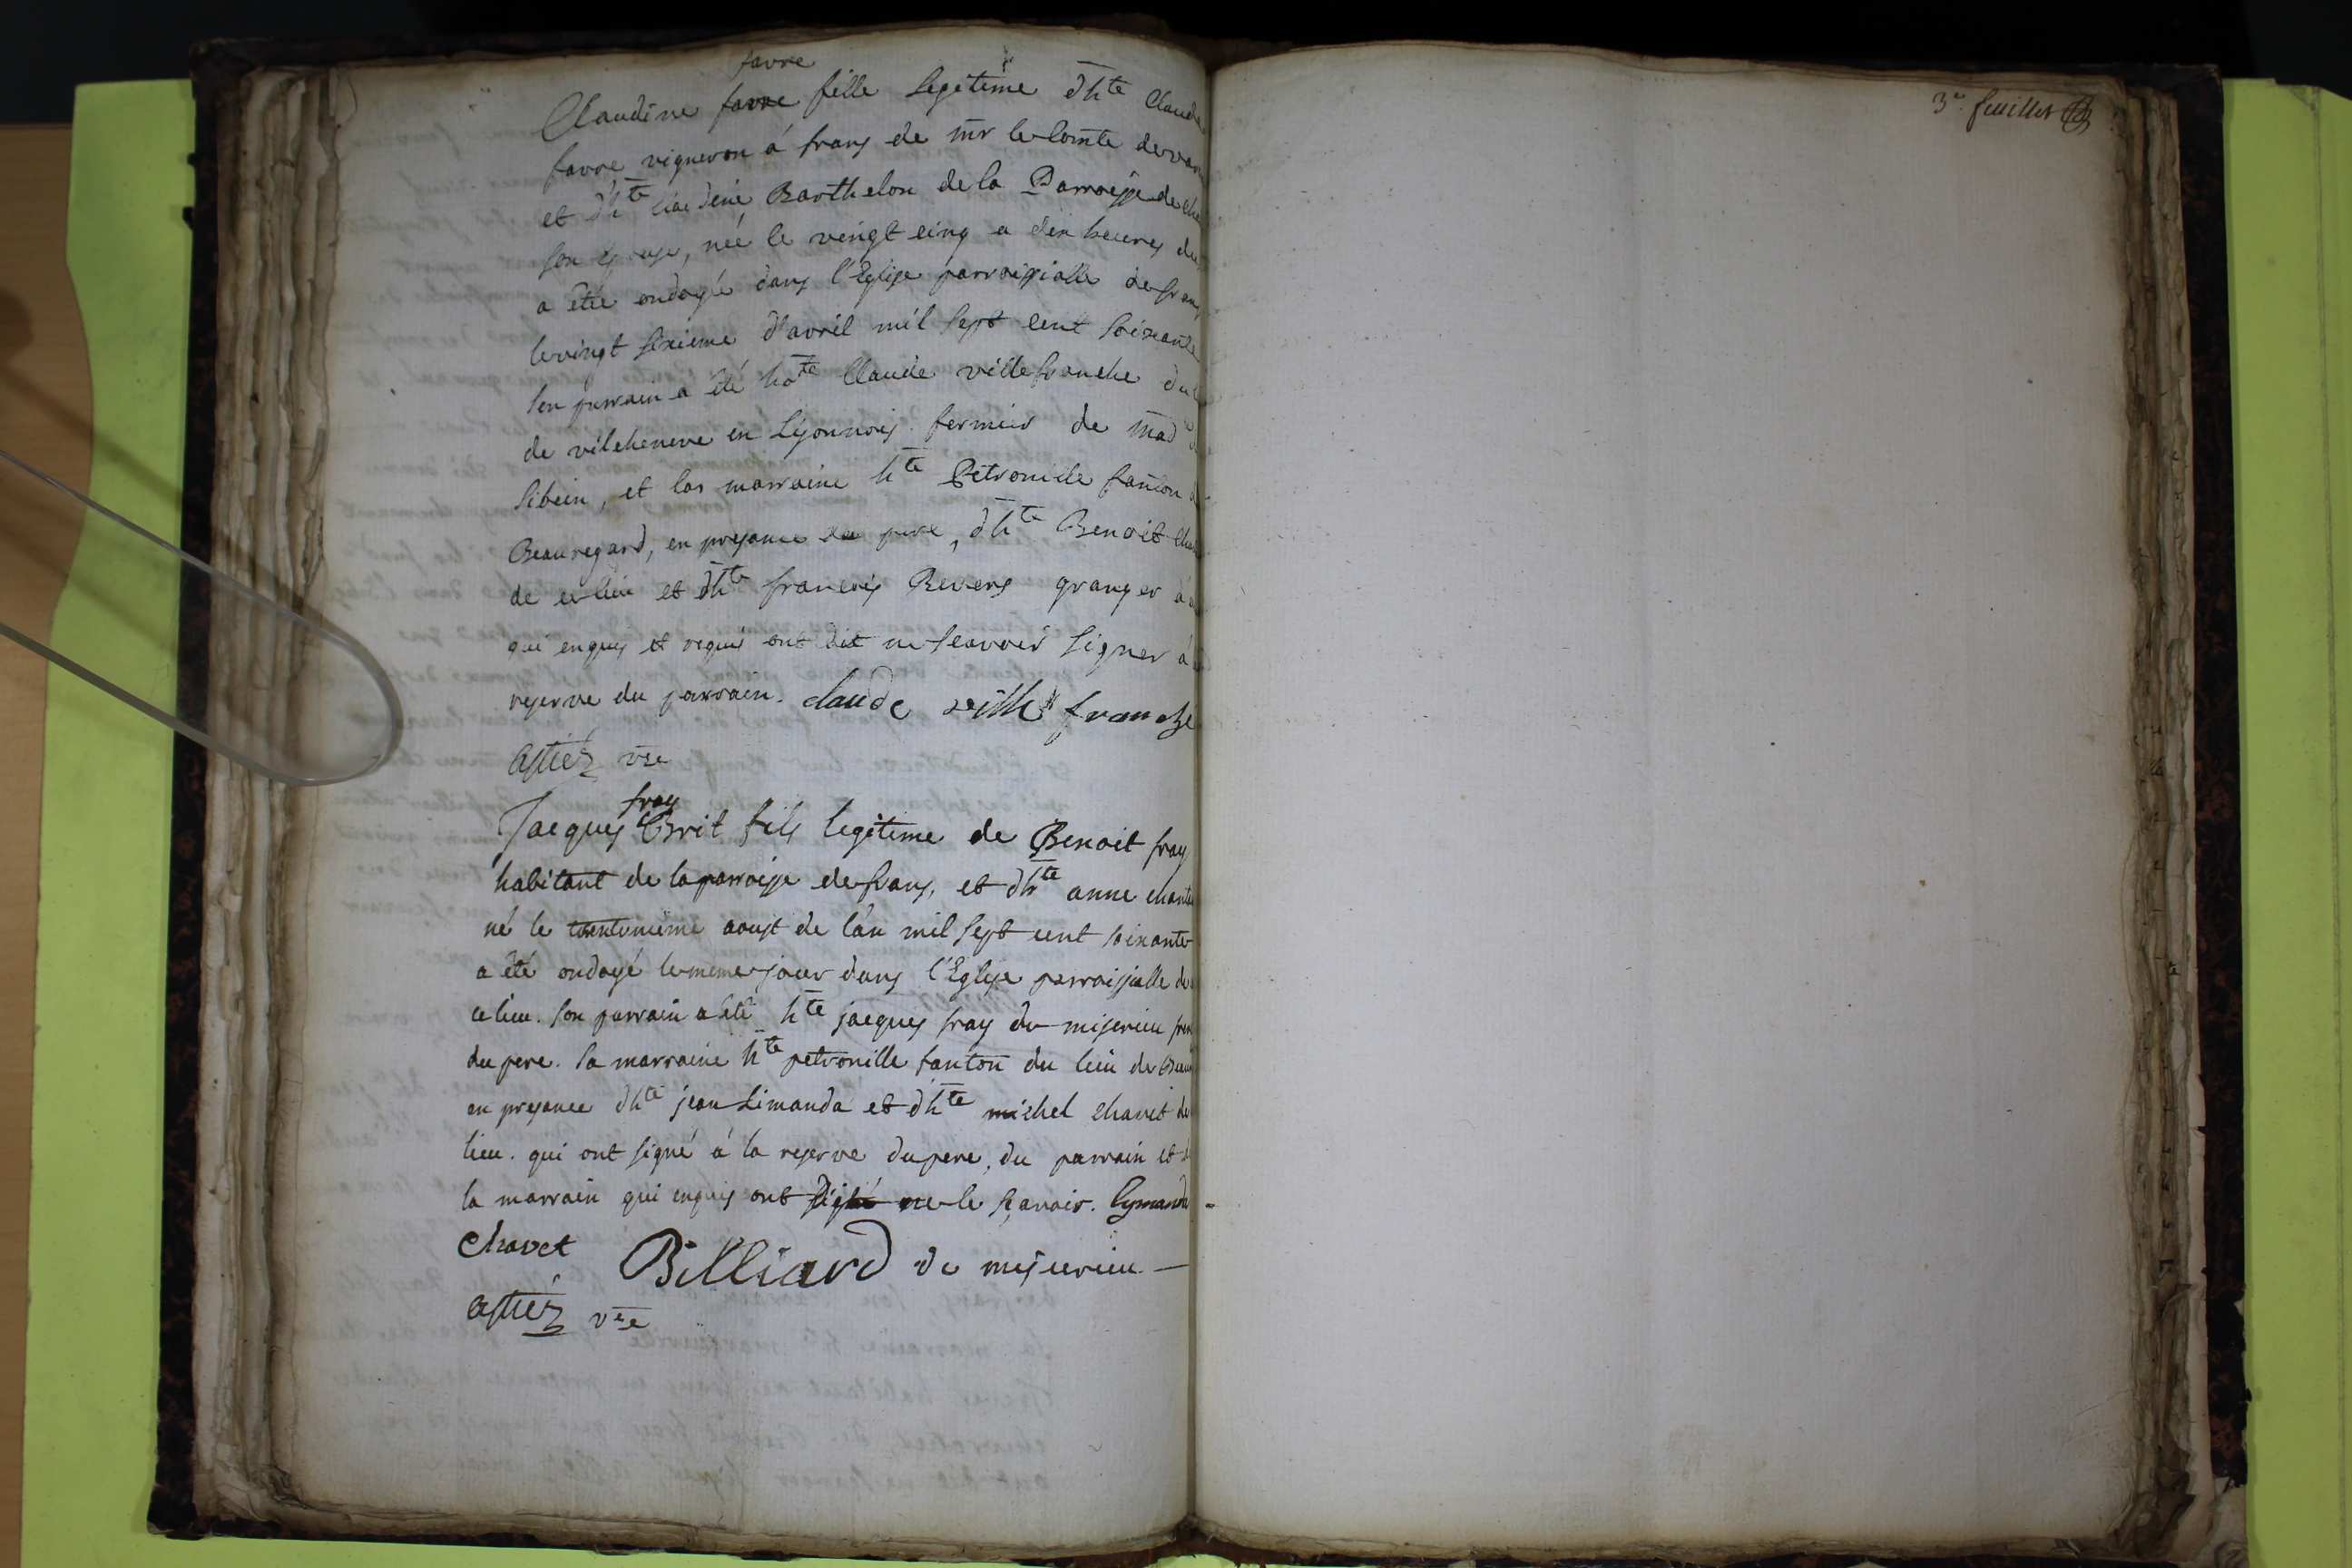 favre
Claudine favre fille legitime d'hte Claude
favre vigneron á frans de mr le comte de
et d'hte Barthelon de la Parroisse de
son epouse, née le vingt cinq a dix heures du
a été ondoyé dans l'Eglise parroissialle de frans
le vingt sixieme d'avril mil sept cent soixante
son parrain a été hote Claude villefranche du
de vilcheneve en Lyonnois fermier de mad
Sibein, et las marraine hte Petronille fanton
Beauregard, en presance du pere, d'hte Benoit
de ce lieu et d'hte francois Revers granger á
qui enquis et requis ont dit ne scavoir signer á
reserve du parrain. claude ville franche
Astiéz vre
fray
Jacques fils legitime de Benoit fray
habitant de la parroisse de frans, et d'hte anne
né le trentunieme aoust de l'an mil sept cent soixante
a été ondoyé le meme jour dans l'Eglise parroissialle de
ce lieu. son parrain a été hte jacques fray du miserieu frere
du pere. sa marraine hte petronille fanton du lieu de
en presance d'hte jean Limanda et d'hte michel chavet du
lieu. qui ont signé á la reserve du pere, du parrain et de
la marrain qui enquis ont ne le sçavoir. Lymanda
chavet Billiard de miserieu
Astiéz vre
3e. feuillet